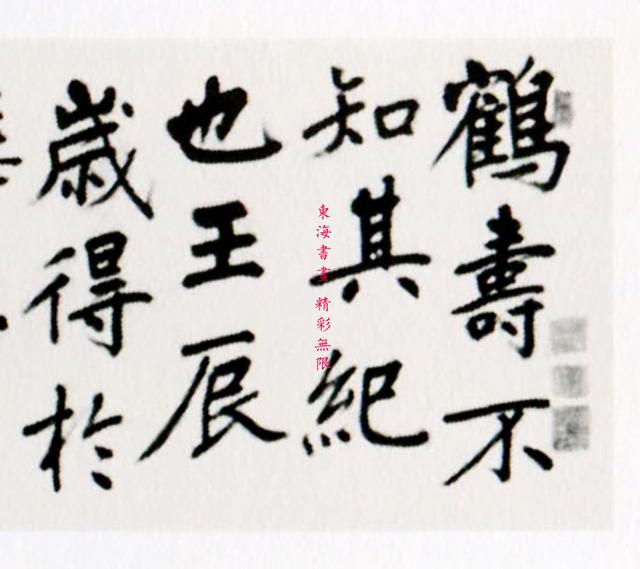 鶴壽不
知其紀
也王辰
歲得於
東海書畫 精彩無限